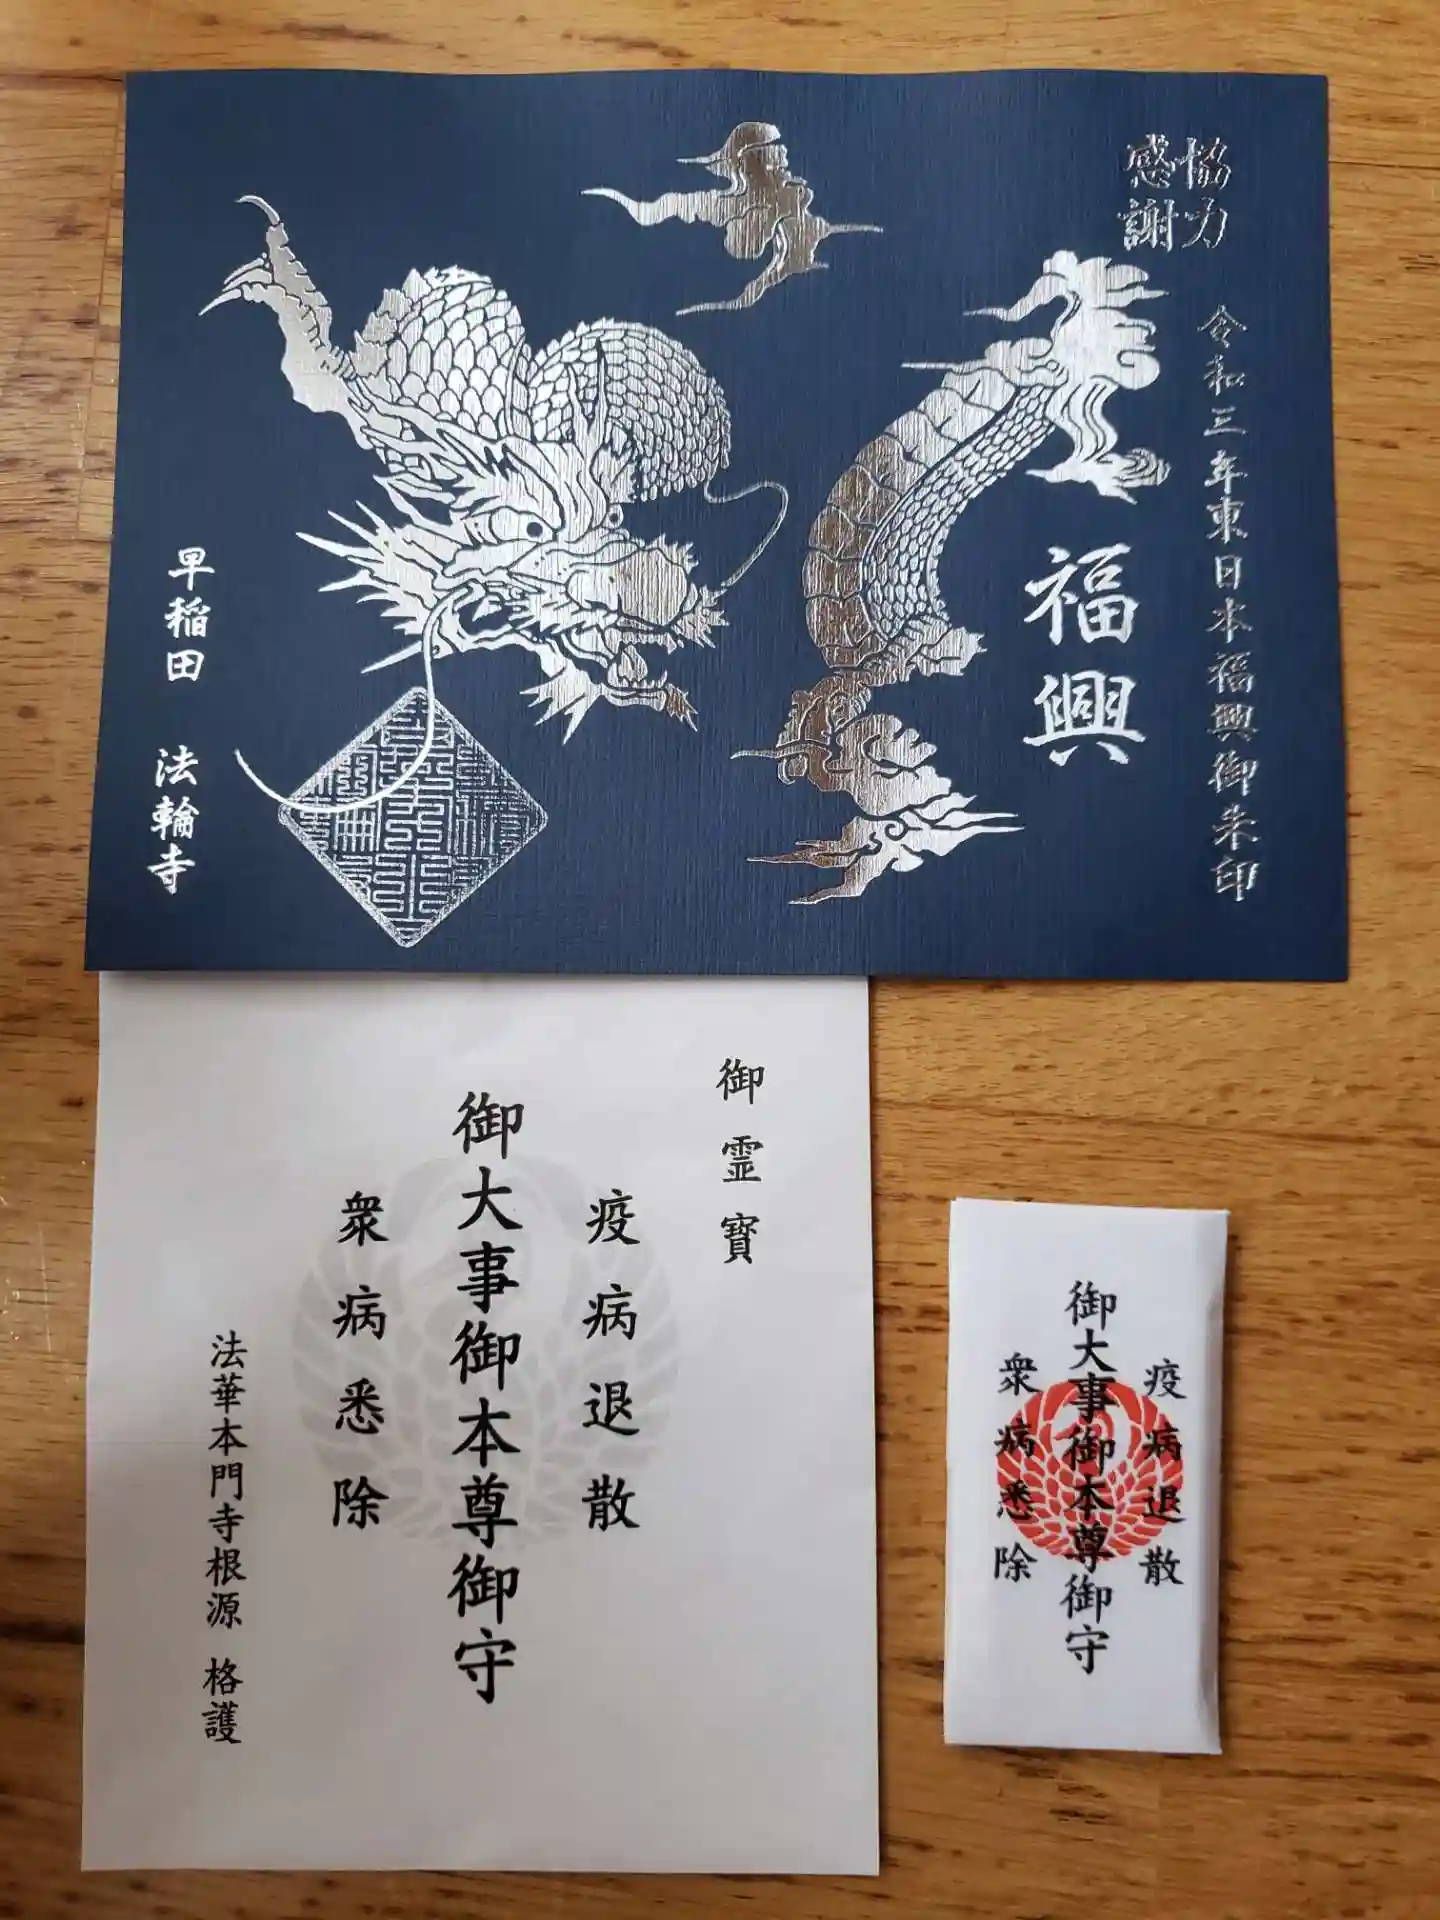 協力
感謝
令和三年東日本福興御朱印
福興
早稲田 法輪寺
御霊寳
疫病退散
御大事御本尊御守
衆病悉除
法華本門寺根源 格護
疫病退散
御大事御本尊御守
衆病悉除